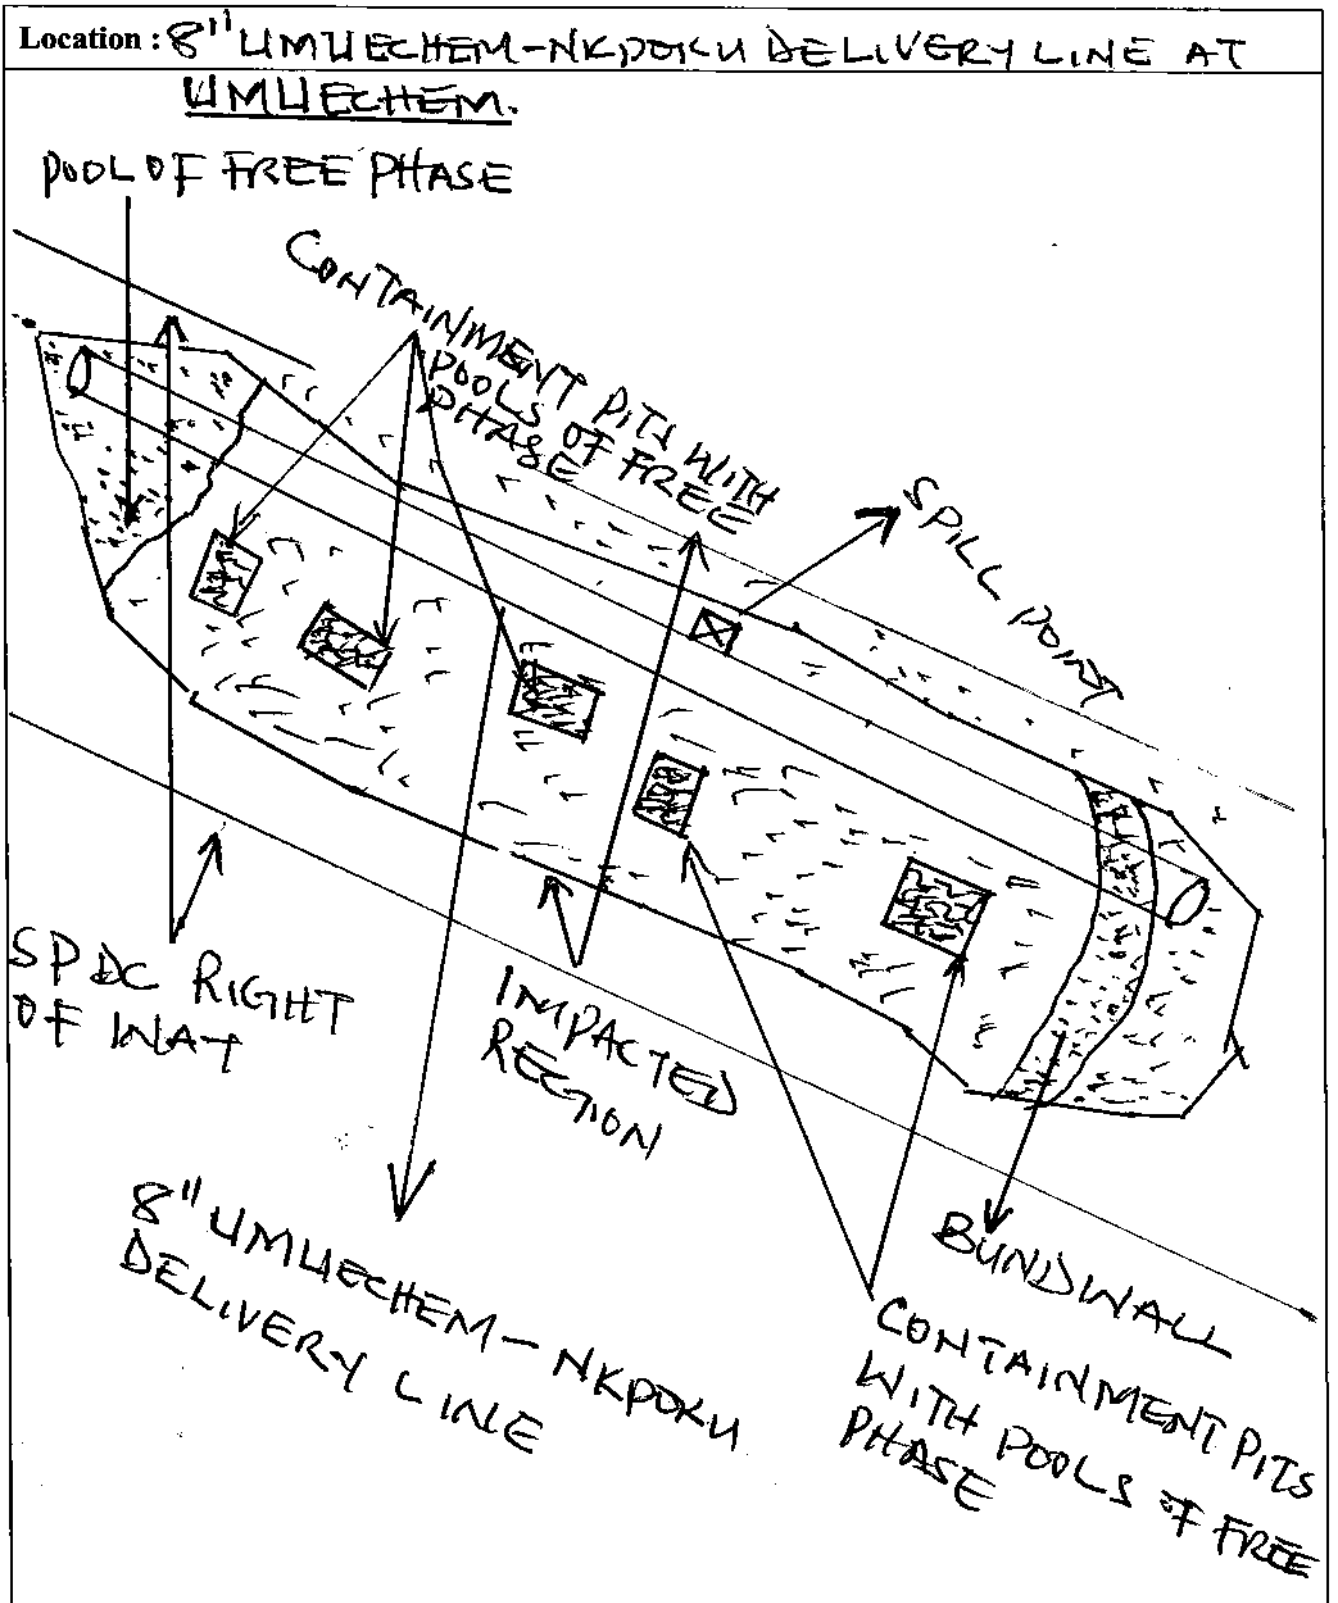 Location : 8" UMUECHEM-NKPOKU DELIVERY LINE AT
UMUECHEM.
POOL OF FREE PHASE
CONTAINMENT PITS WITH
POOLS OF FREE
PHASE
SPILL POINT
SPDC RIGHT
OF WAY
IMPACTED
REGION
8" UMUECHEM-NKPOKU
DELIVERY LINE
BUNDWALL
CONTAINMENT PITS
WITH POOLS OF FREE
PHASE